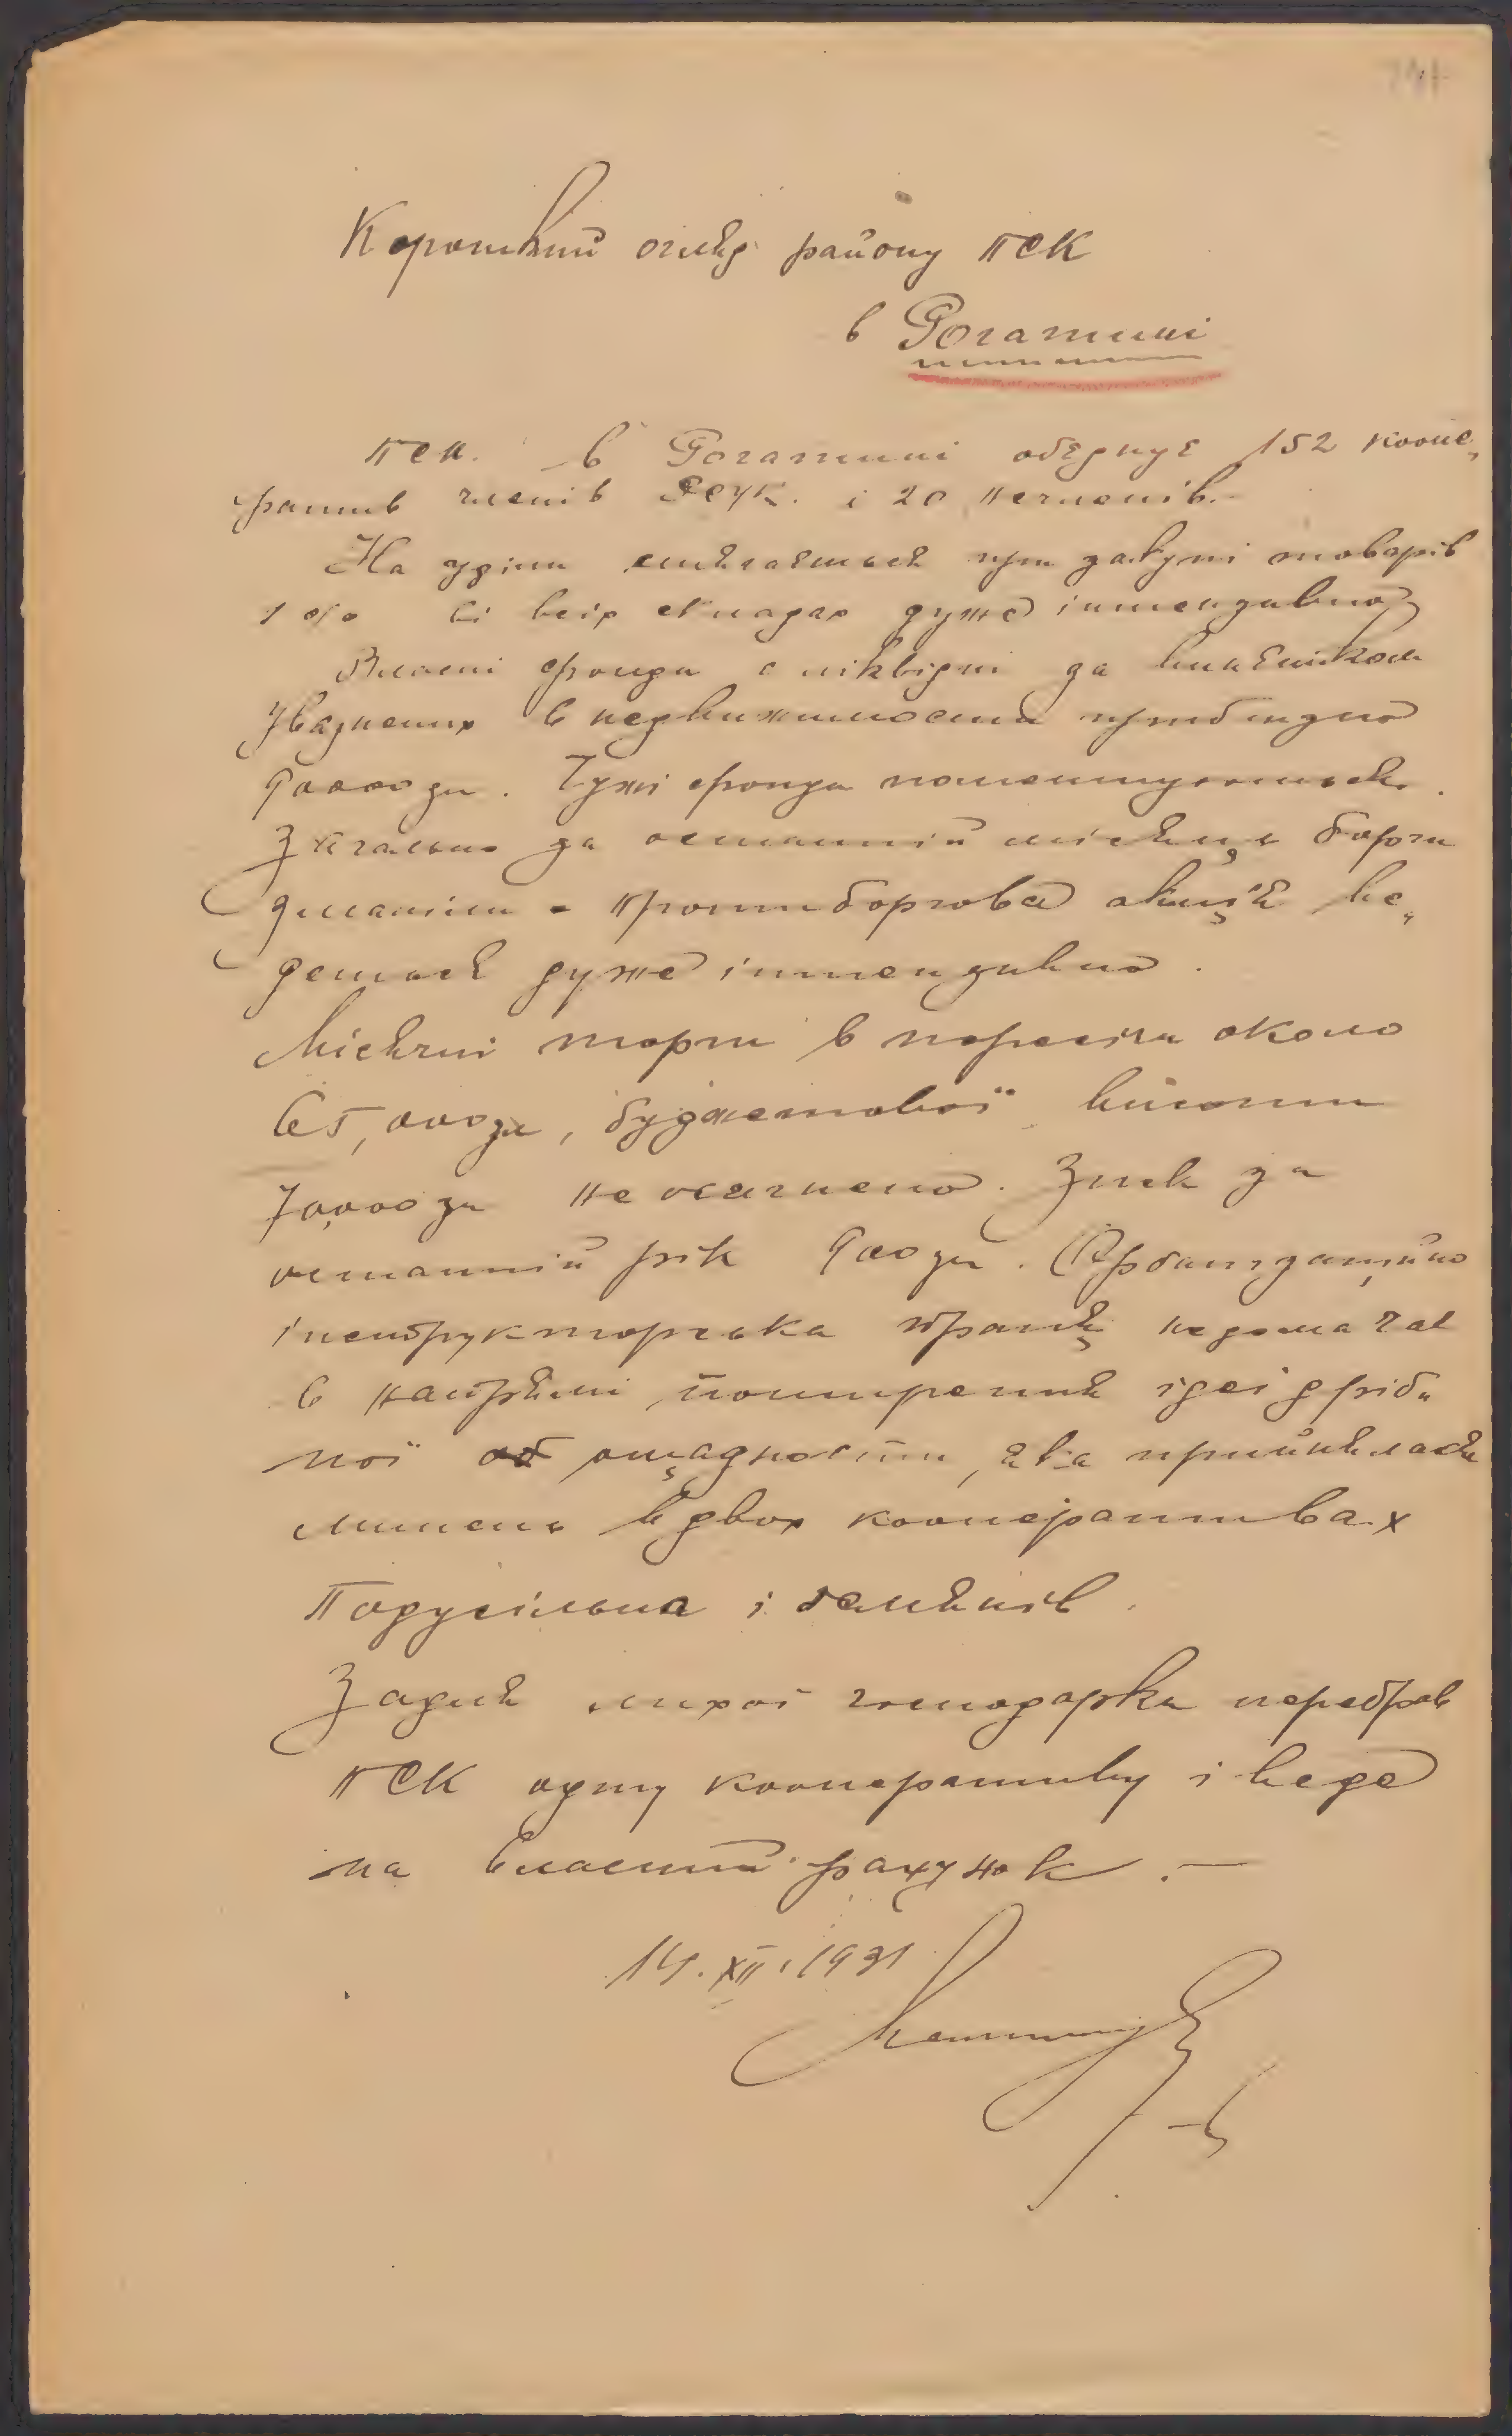 Короткий огляд району ПСК
в Рогатині
ПСК. в Рогатині обєднує 152 коопе„
ратив членів РСУК. і 20 нечленів.-
На уділи стягається при закупі товарів
1 % зі всіх складах дуже інтензивно
Власні фонди є ліквідні за виїмком
уваз​нених в недвижимости приблизно
90000 зл. Чужі фонди
Загально за останній місяць борги
змаліли - протиборгова акція ве„
деться дуже інтензивно.
Місячні торги в пересічи около
65,000 зл, буджетової висоти
70,000 зл не осягнено. Зиск за
останній рік 900 зл. Орґанізаційно
інструкторська праця недомагає
в напрямі поширення ідеї дріб„
ної ощадности, яка прийнялася
лишень в двох кооперативах
Підусільна і
Задля лихої господарки перебрав
ПСК одну кооперативу і веде
на власний рахунок.—
14.XII.1931